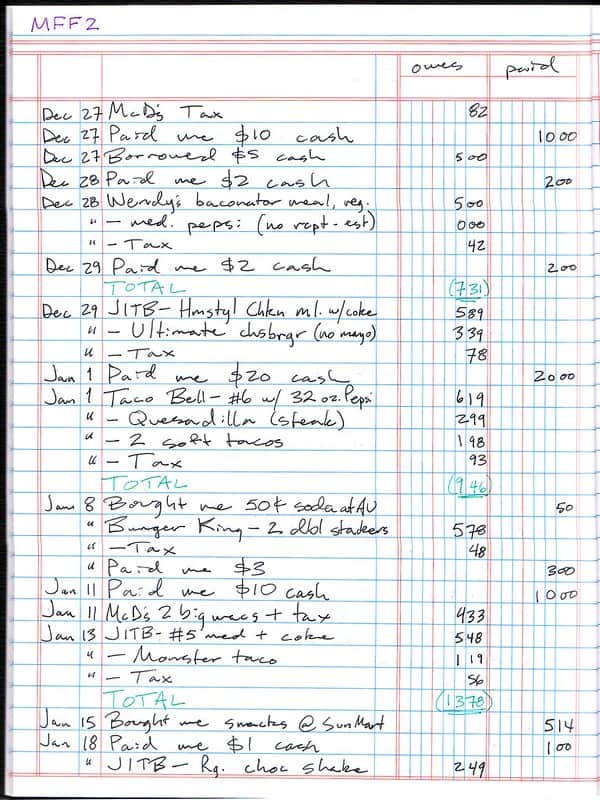 MFF2
owes paid
Dec 27 McD's Tax 82
Dec 27 Paid me $10 cash 1000
Dec 27 Borrowed $5 cash 500
Dec 28 Paid me $2 cash 200
Dec 28 Wendy's baconator meal, reg. 500
" - med. pepsi (no rcpt-est) 000
" - Tax 42
Dec 29 Paid me $2 cash 200
TOTAL (731)
Dec 29 JITB - Hmstyl Chkn ml. w/coke 589
" - Ultimate chsbrgr (no mayo) 339
" - Tax 78
Jan 1 Paid me $20 cash 2000
Jan 1 Taco Bell - #6 w/ 32 oz. Pepsi 619
" - Quesadilla (steak) 299
" - 2 soft tacos 198
" - Tax 93
TOTAL (946)
Jan 8 Bought me 50¢ soda at AU 50
" Burger King - 2 dbl stackers 578
" - Tax 48
" Paid me $3 300
Jan 11 Paid me $10 cash 1000
Jan 11 McD's 2 big macs + tax 433
Jan 13 JITB - #5 med + coke 548
" - Monster taco 119
" - Tax 56
TOTAL (1378)
Jan 15 Bought me snacks @ SunMart 514
Jan 18 Paid me $1 cash 100
" JITB - Rg. choc shake 249